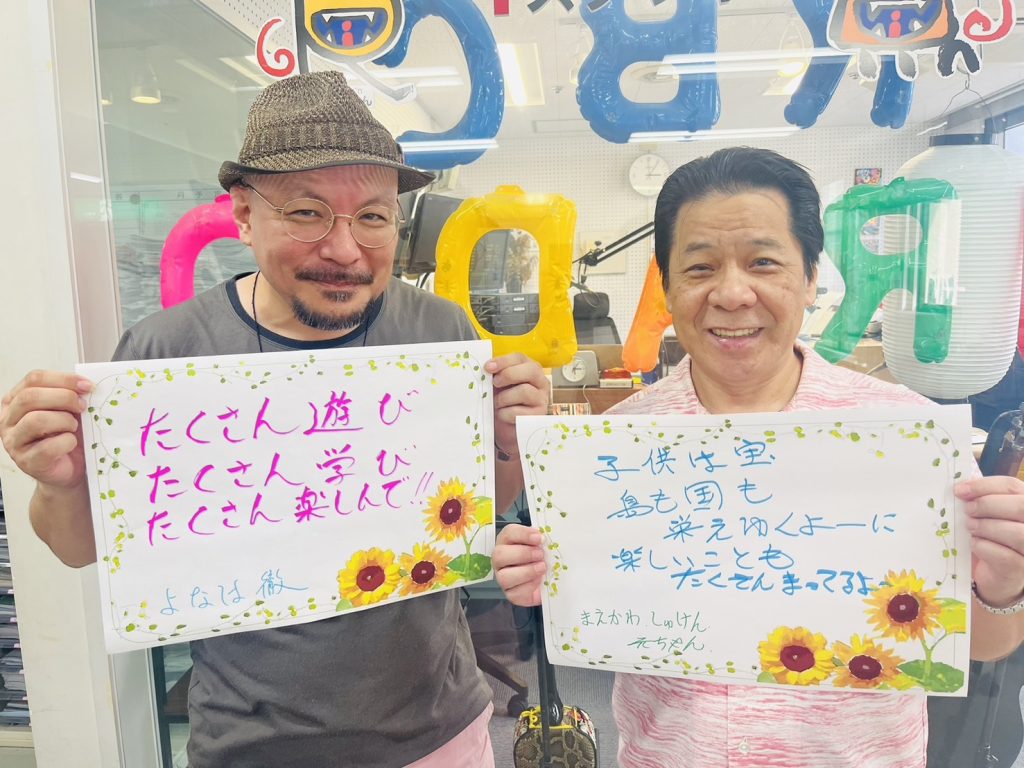 たくさん遊び
たくさん学び
たくさん楽しんで!!
よなは徹
子供は宝
島も国も
栄えゆくよーに
楽しいことも
たくさんまってるよ
まえかわ.しゅけん
そちゃん.
RBC
RADIO